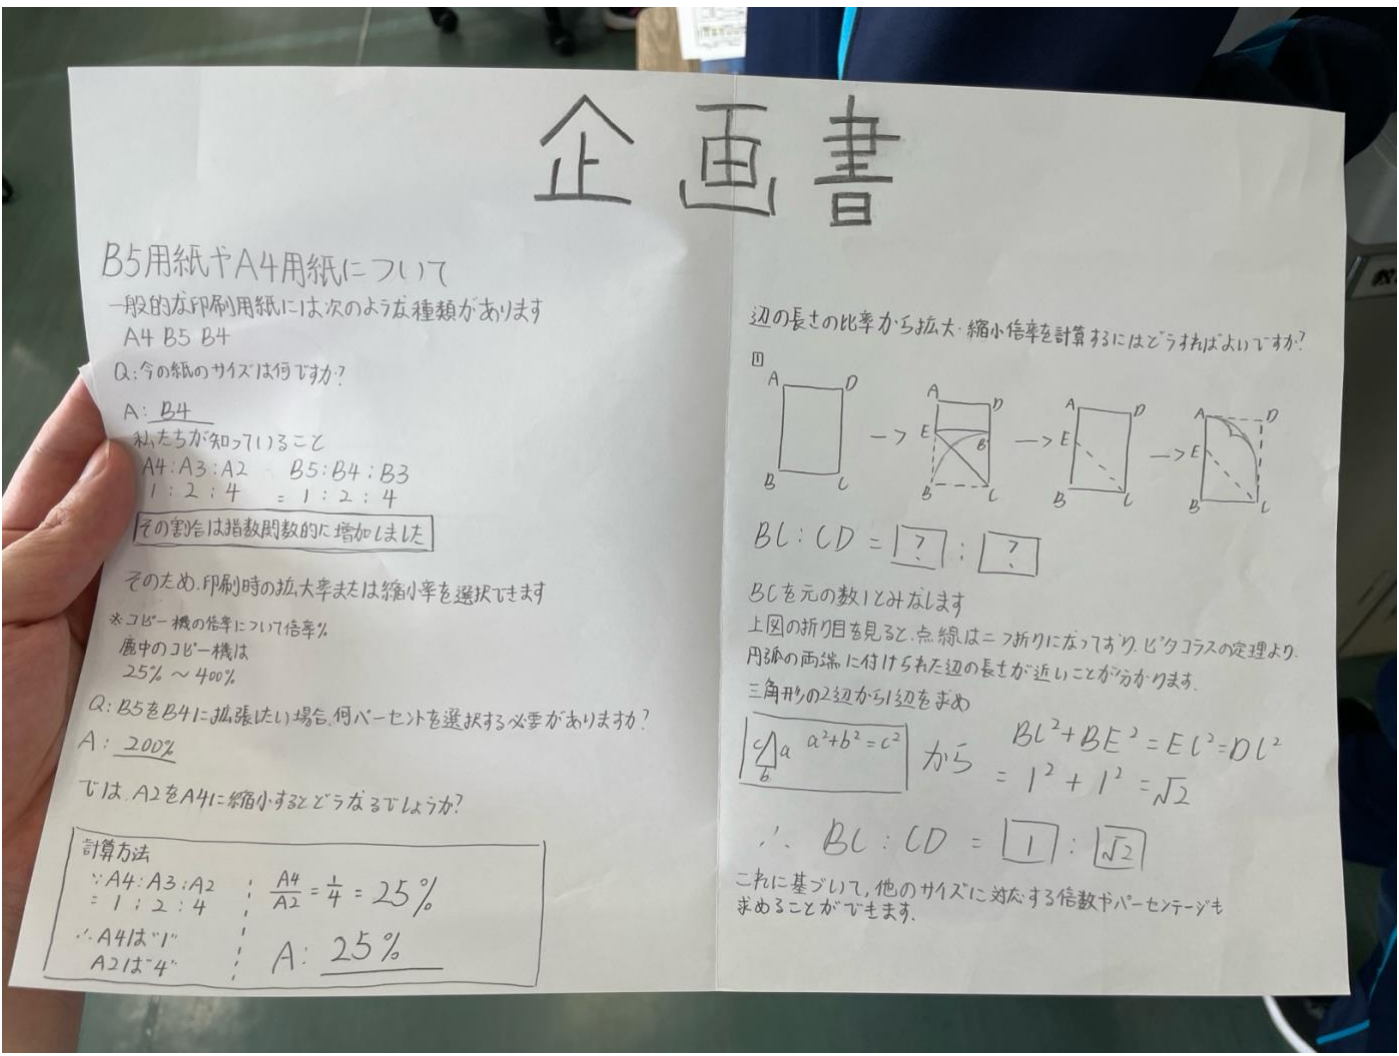 企画書
B5用紙やA4用紙について
一般的な印刷用紙には次のような種類があります
A4 B5 B4
Q:今の紙のサイズは何ですか?
A: B4
私たちが知っていること
A4:A3:A2 B5:B4:B3
1:2:4 = 1:2:4
その割合は指数関数的に増加しました
そのため、印刷時の拡大率または縮小率を選択できます
※コピー機の倍率について倍率%
鹿中のコピー機は
25%~400%
Q:B5をB4に拡張したい場合、何パーセントを選択する必要がありますか?
A: 200%
では、A2をA4に縮小するとどうなるでしょうか?
計算方法
∵A4:A3:A2
= 1:2:4
∴A4は"1"
A2は"4"
A4/A2 = 1/4 = 25%
A: 25%
辺の長さの比率から拡大・縮小倍率を計算するにはどうすればよいですか?
1
A D B C
-> A D E B' B C
-> A D E B C
-> A D E B C
BC:CD = ? : ?
BCを元の数1とみなします
上図の折り目を見ると、点線は二つ折りになっており、ピタコラスの定理より、
円弧の両端に付けられた辺の長さが近いことが分かります。
三角形の2辺から1辺を求め
c a b a²+b²=c² から BC²+BE²=EC²=DC²
= 1²+1²=√2
∴ BC:CD = 1 : √2
これに基づいて、他のサイズに対応する倍数やパーセンテージも
求めることができます。